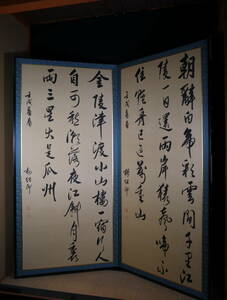 朝辭白帝彩雲間千里江
陵一日還兩岸猿聲啼不
住輕舟已過萬重山
壬戌
金陵津渡小山樓一宿行人
自可愁潮落夜江斜月裏
兩三星火是瓜州
壬戌